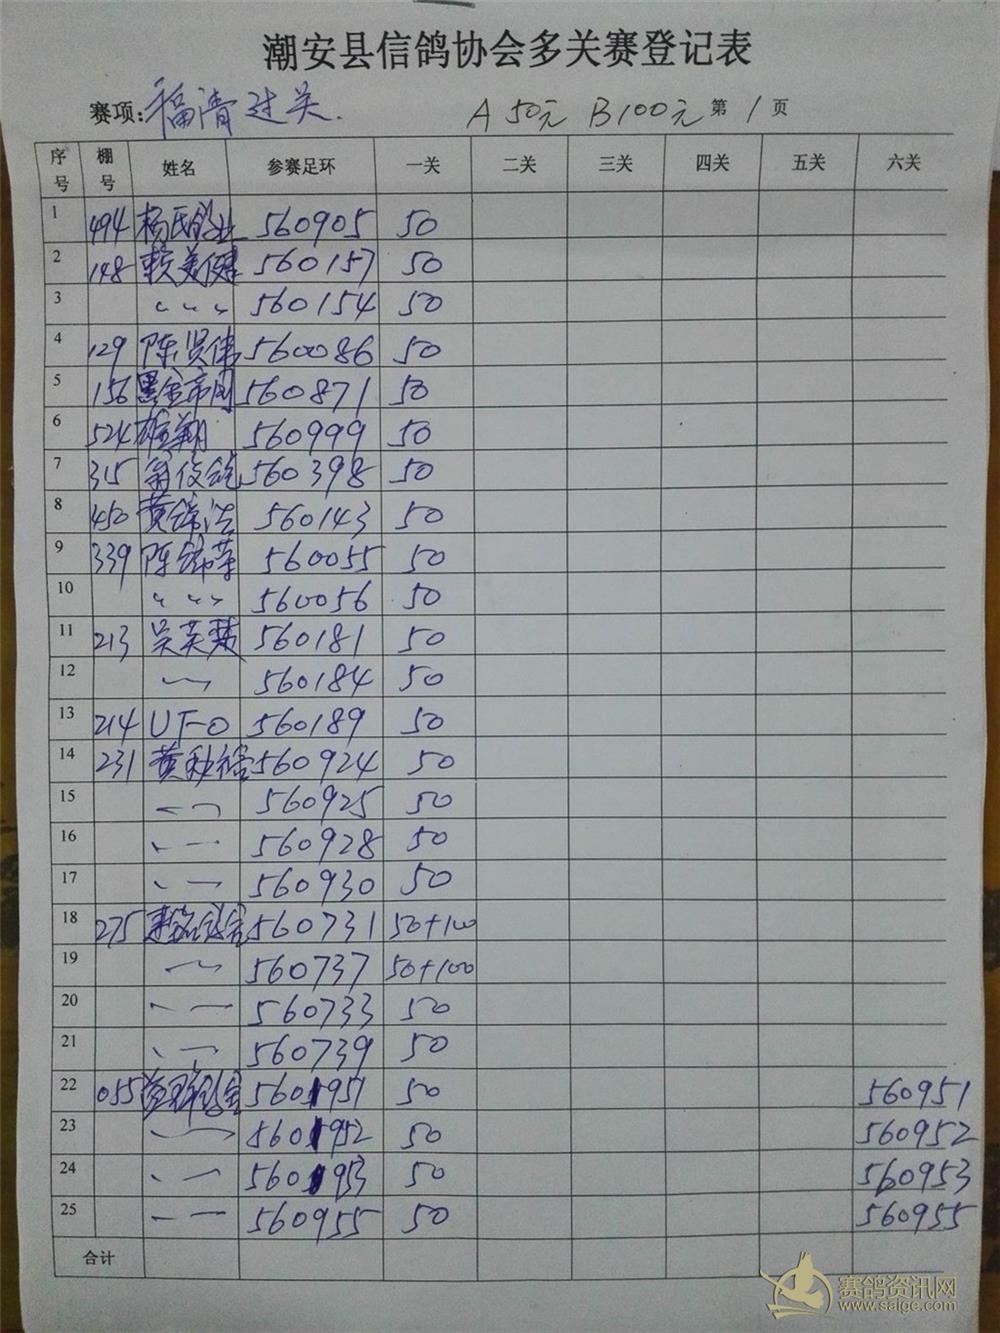 潮安县信鸽协会多关赛登记表
赛项:福清过关. A 50元 B 100元 第 1 页
序号 棚号 姓名 参赛足环 一关 二关 三关 四关 五关 六关
1 494 杨氏鸽业 560905 50
2 148 赖美健 560157 50
3 〃 〃 〃 560154 50
4 129 陈贤伟 560086 50
5 156 黑金帝国 560871 50
6 524 雄翔 560999 50
7 315 560398 50
8 450 黄锦浩 560143 50
9 339 陈锦荣 560055 50
10 〃 〃 〃 560056 50
11 213 吴英 560181 50
12 〃 560184 50
13 214 UFO 560189 50
14 231 黄 560924 50
15 〃 560925 50
16 〃 560928 50
17 〃 560930 50
18 275 560731 50+100
19 〃 560737 50+100
20 〃 560733 50
21 〃 560739 50
22 055 50 560951
23 〃 50 560952
24 〃 50 560953
25 〃 560955 50 560955
合计
赛鸽资讯网
www.saige.com